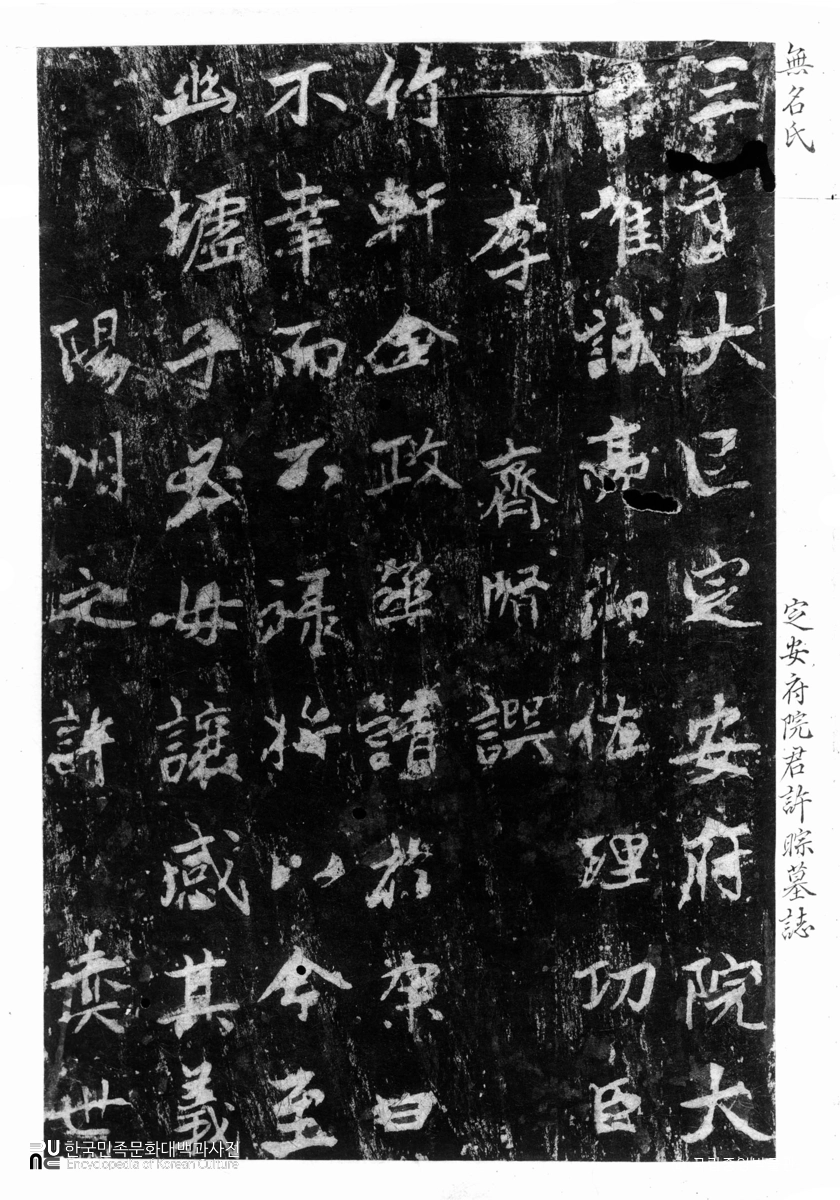 無名氏
定安府院君許墓誌
三重大匡定安府院大
君推誠亮節佐理功臣
李齊賢譔
竹軒金政丞請於曰
不幸而不祿將以今至
幽墟子必毋讓感其義
陽川之許奕世
한국민족문화대백과사전
Encyclopedia of Korean Culture